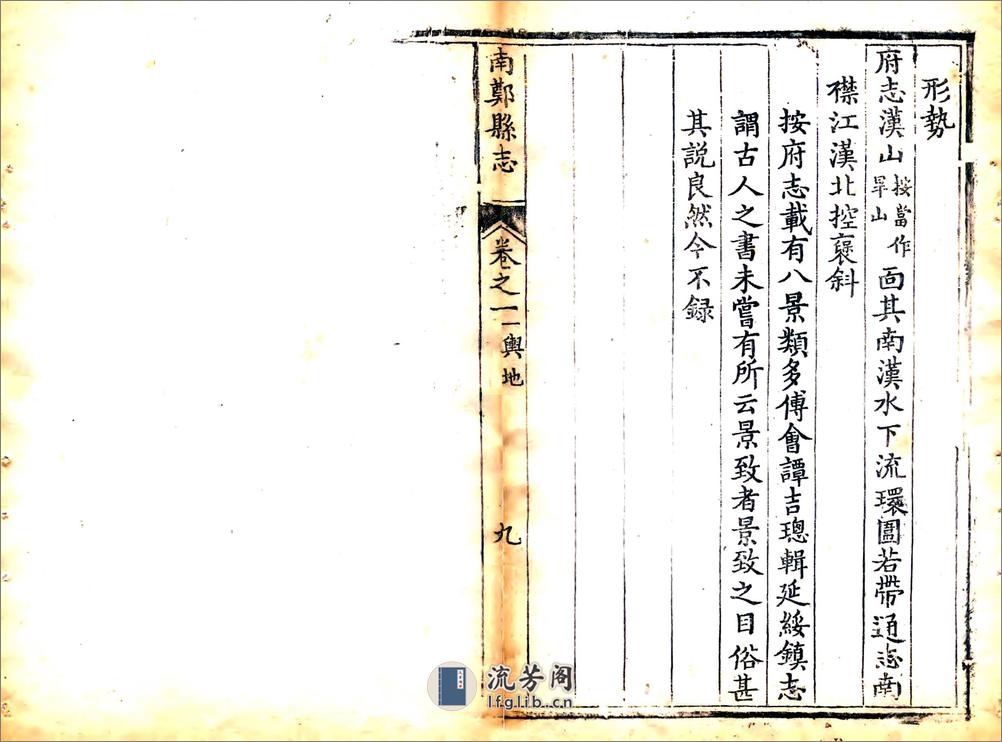 形勢
府志漢山按當作旱山面其南漢水下流環圍若帶通志南
襟江漢北控褒斜
按府志載有八景類多傅會譚吉璁輯延綏鎮志
謂古人之書未嘗有所云景致者景致之目俗甚
其説良然今不録
南鄭縣志
卷之一
輿地
九
流芳阁
lfglib.cn